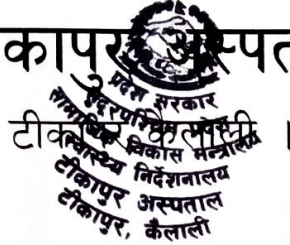 टीकापुर अस्पत
टीकापुर, कैलाली ।
प्रदेश सरकार
सुदूरपश्चिम प्रदेश
सामाजिक विकास मन्त्रालय
स्वास्थ्य निर्देशनालय
टीकापुर अस्पताल
टीकापुर, कैलाली